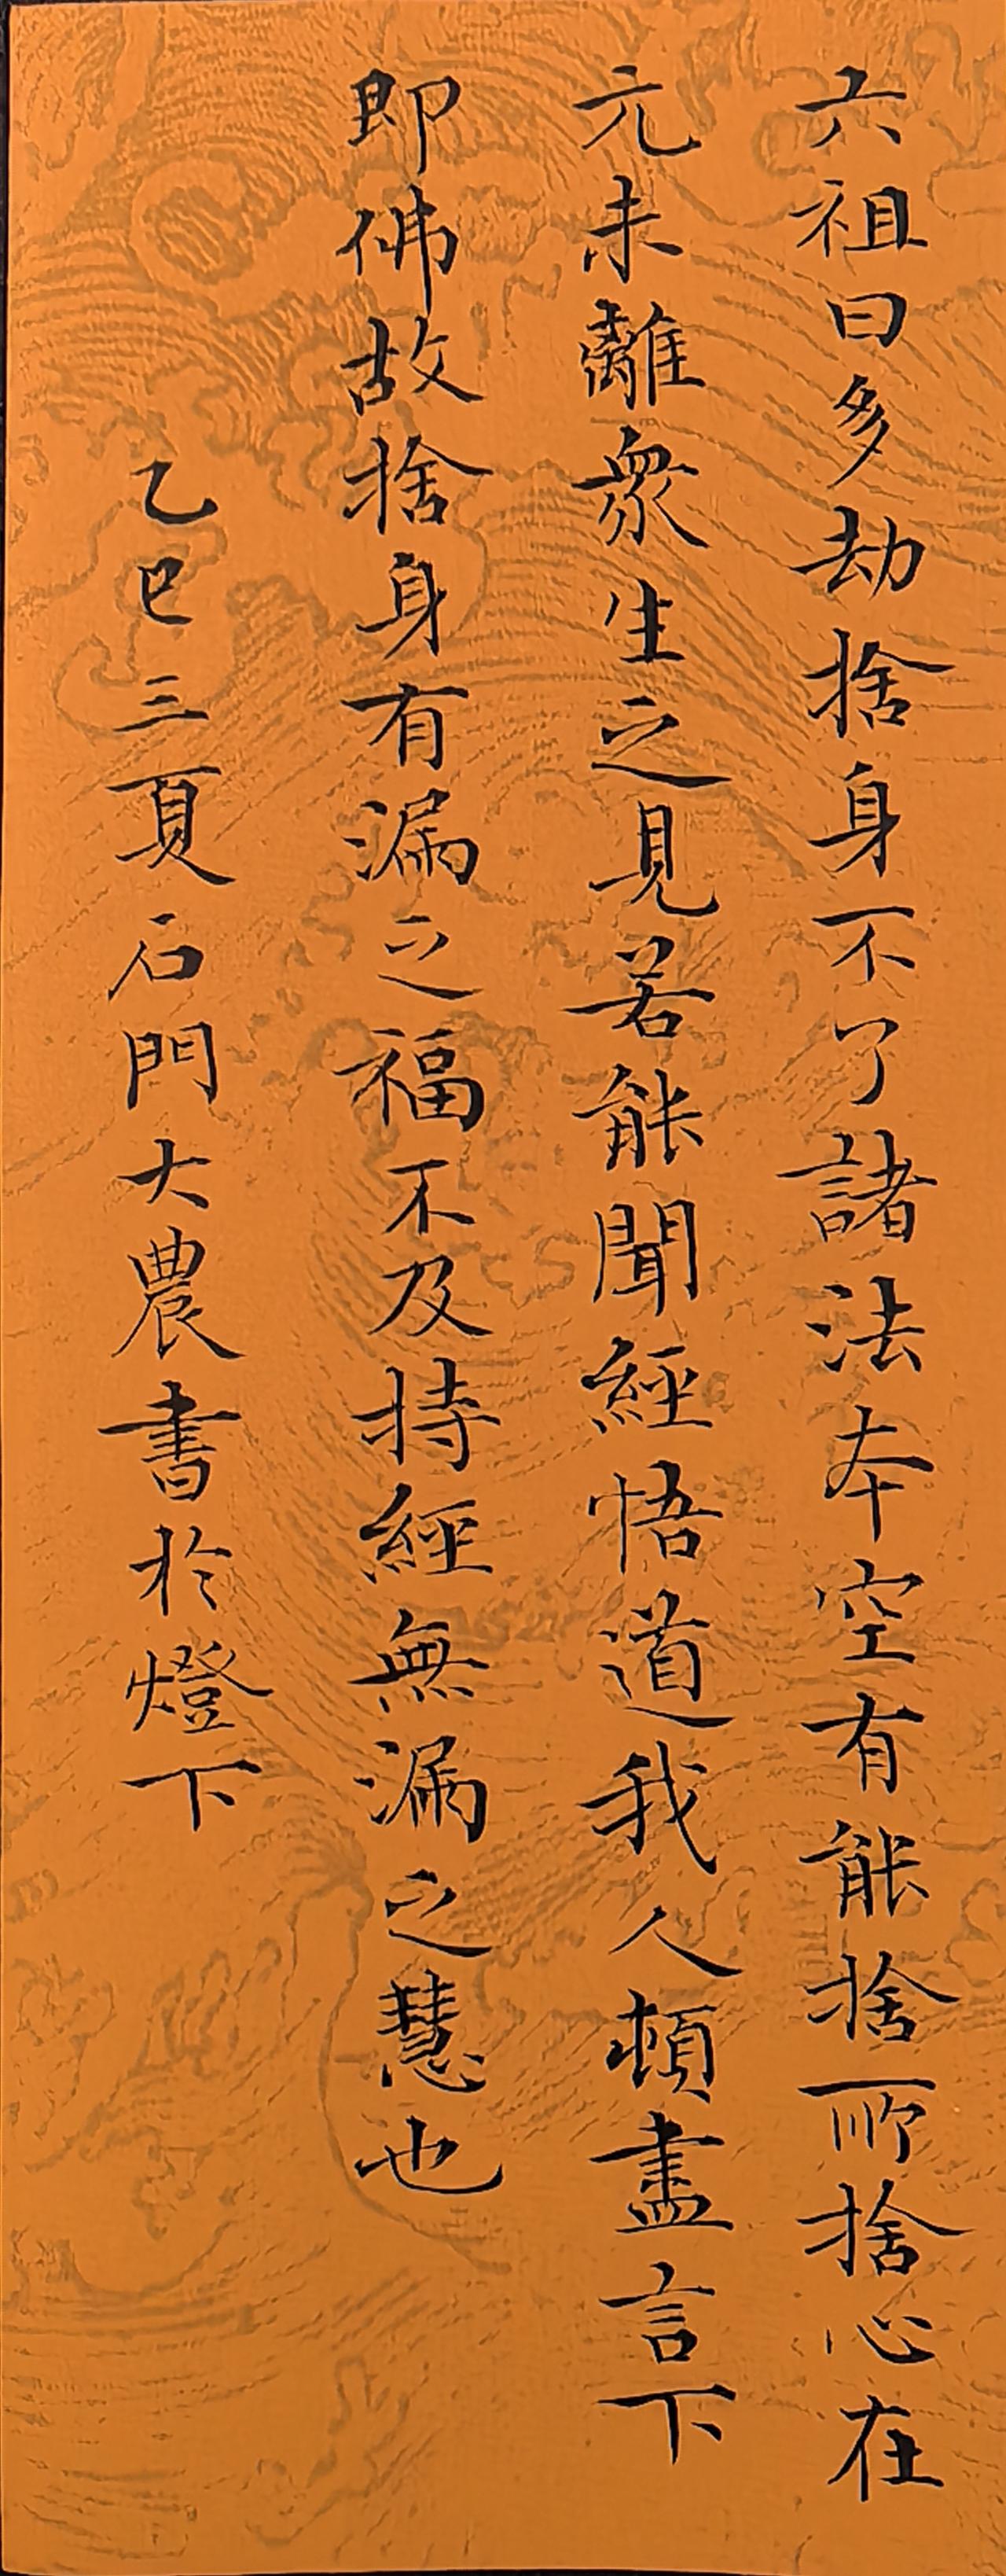 六祖曰多劫捨身不了諸法本空有能捨所捨心在
元未離衆生之見若能聞經悟道我人頓盡言下
即佛故捨身有漏之福不及持經無漏之慧也
乙巳三夏石門大農書於燈下